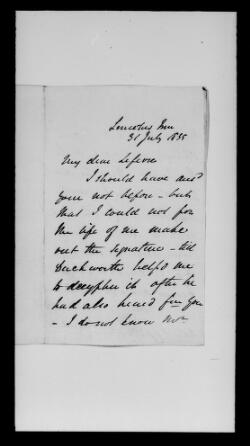 Lincolns Inn
31 July 1835
My dear Lefevre
I should have ansd
your not before - but
that I could not for
the life of me make
out the signature - till
Duckworth helpd me
to decypher it after he
had also heard fm you
- I do not know Mr